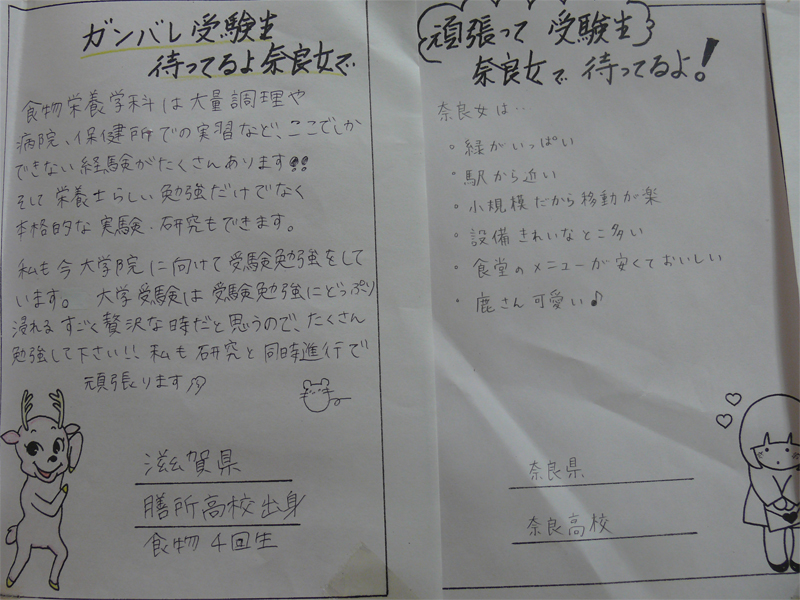 ガンバレ 受験生
待ってるよ 奈良女で
食物栄養学科は大量調理や
病院、保健所での実習など、ここでしか
できない経験がたくさんあります!!
そして 栄養士らしい勉強だけでなく
本格的な実験・研究もできます。
私も今大学院に向けて受験勉強をして
います。 大学受験は受験勉強にどっぷり
浸れる すごく贅沢な時だと思うので、たくさん
勉強して下さい!! 私も研究と同時進行で
頑張ります
滋賀県
膳所高校出身
食物 4回生
頑張って 受験生
奈良女で 待ってるよ!
奈良女は‥
・緑がいっぱい
・駅から近い
・小規模だから移動が楽
・設備きれいなとこ多い
・食堂のメニューが安くておいしい
・鹿さん可愛い♪
奈良県
奈良高校